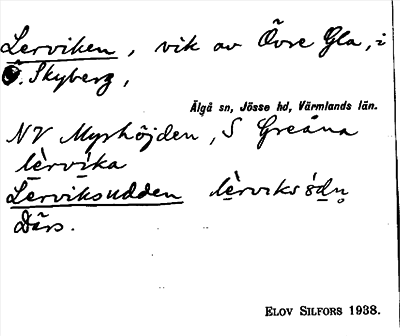 Lerviken, vik av Övre Gla, i
Ö. Skyberg,
Älgå sn, Jösse hd, Värmlands län.
NV Myrhöjden, S Greåna
lèrvika
Lerviksudden
Därs.
ELOV SILFORS 1938.